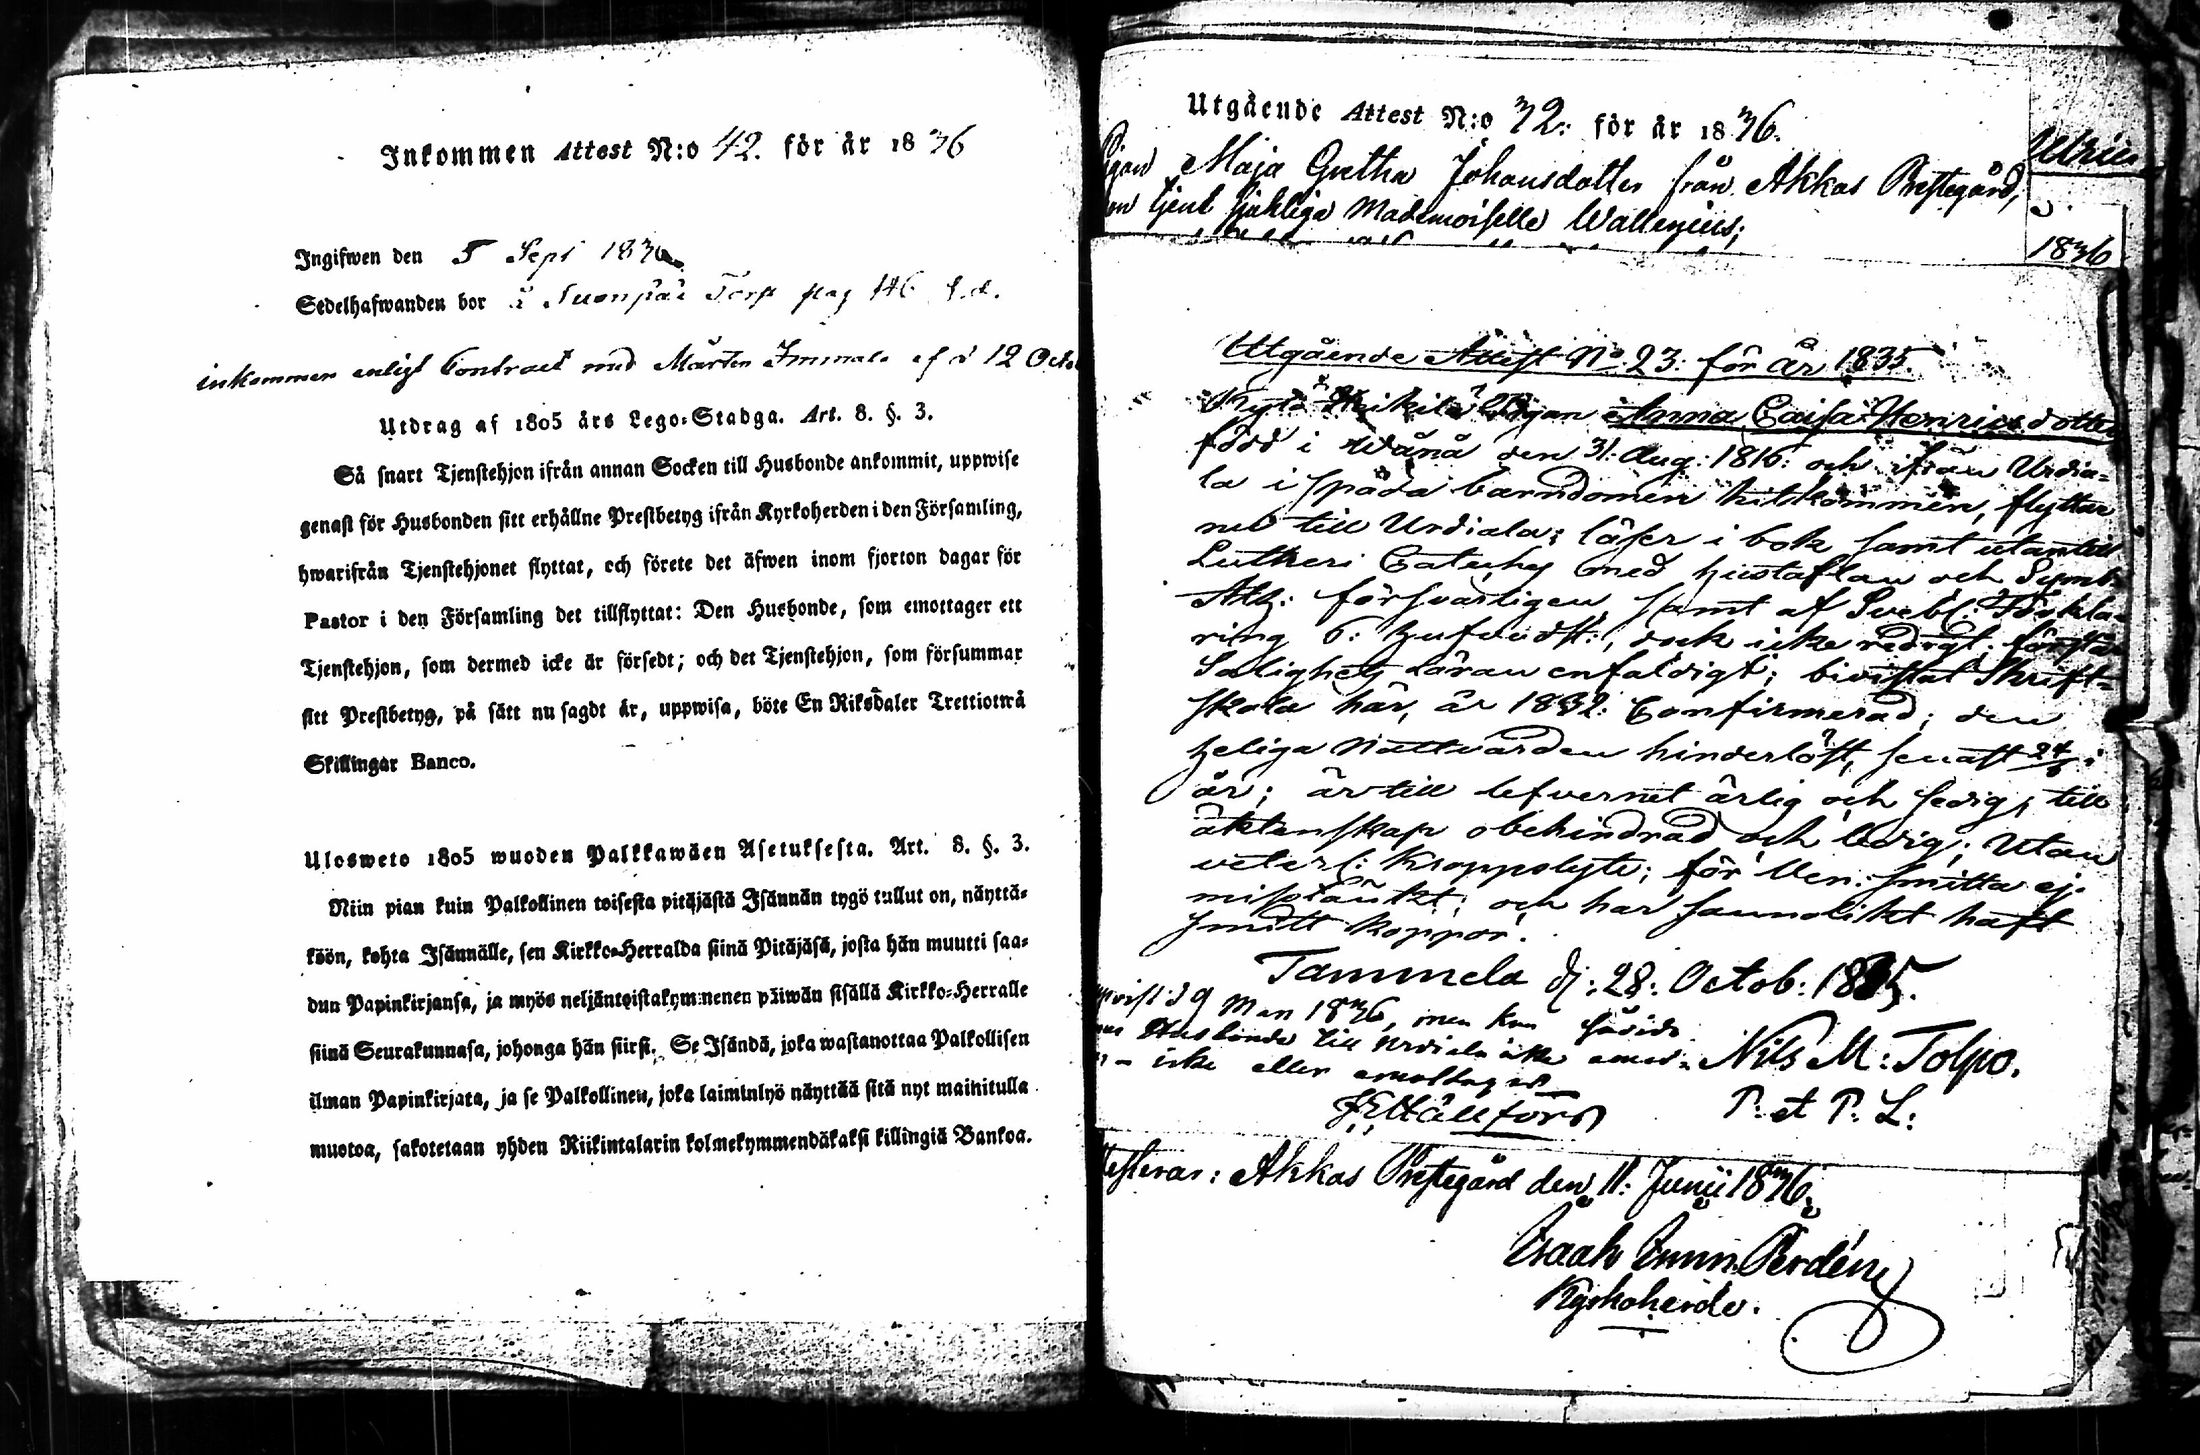 Inkommen Attest N:o 42. för år 1836
Ingifwen den 5 Sept 1836
Sedelhafwanden bor Torp pag 146
inkommen enligt Contract med Mårten Immala af d 12 Octo
Utdrag af 1805 års Lego-Stadga. Art. 8. §. 3.
Så snart Tjenstehjon ifrån annan Socken till Husbonde ankommit, uppwise
genast för Husbonden sitt erhållne Prestbetyg ifrån Kyrkoherden i den Församling,
hwarifrån Tjenstehjonet flyttat, och förete det äfwen inom fjorton dagar för
Pastor i den Församling det tillflyttat: Den Husbonde, som emottager ett
Tjenstehjon, som dermed icke är försedt; och det Tjenstehjon, som försummar
sitt Prestbetyg, på sätt nu sagdt är, uppwisa, böte En Riksdaler Trettiotwå
Skillingar Banco.
Ulosweto 1805 wuoden Palkkawäen Asetuksesta. Art. 8. §. 3.
Niin pian kuin Palkollinen toisesta pitäjästä Isännän tygö tullut on, näyttä-
köön, kohta Isännälle, sen Kirkko-Herralda siinä Pitäjäsä, josta hän muutti saa-
dun Papinkirjansa, ja myös neljäntoistakymmenen päiwän sisällä Kirkko-Herralle
siinä Seurakunnasa, johonga hän siirsi. Se Isändä, joka wastanottaa Palkollisen
ilman Papinkirjata, ja se Palkollinen, joka laiminlyö näyttää sitä nyt mainitulla
muotoa, sakotetaan yhden Riikintalarin kolmekymmendäkaksi killingiä Bankoa.
Utgående Attest N:o 32: för år 1836.
Pigan Maja Gretha Johansdotter från Akkas Prestegård,
tjent Mademoiselle Wallenius;
1836
Utgående Attest No 23: för år 1835.
Pigan Anna Caisa Henricsdotter
född i Wånå den 31: Aug: 1816: och ifrån Urdia-
la i späda barndomen hitkommen, flyttar
nu till Urdiala; läser i bok samt utantill
Lutheri Cateches med hustaflan och Symb:
Ath: försvarligen, samt af Svebl: Förkla-
ring 6: hufvudst:, dock icke redigt; förstår
Salighets Läran enfaldigt; bivistat Skrift-
skola här, är 1832: Confirmerad; den
heliga Nattvarden hinderlöst, senast i
år; är till lefvernet ärlig och sedig, till
äktenskap obehindrad och ledig; Utan
veterl: Kroppslyte; för Ven: smitta ej
misstänkt; och har sannolikt haft
smitt koppor.
Tammela d: 28: Octob: 1835.
9 Man 1836, men kun
Husbonde till Urdiala icke
icke eller emottagas
Nils M: Tolpo.
P: et P: L:
Akkas Prestegård den 11: Junii 1836.
Isaak Emm. Perdén
Kyrkoherde.